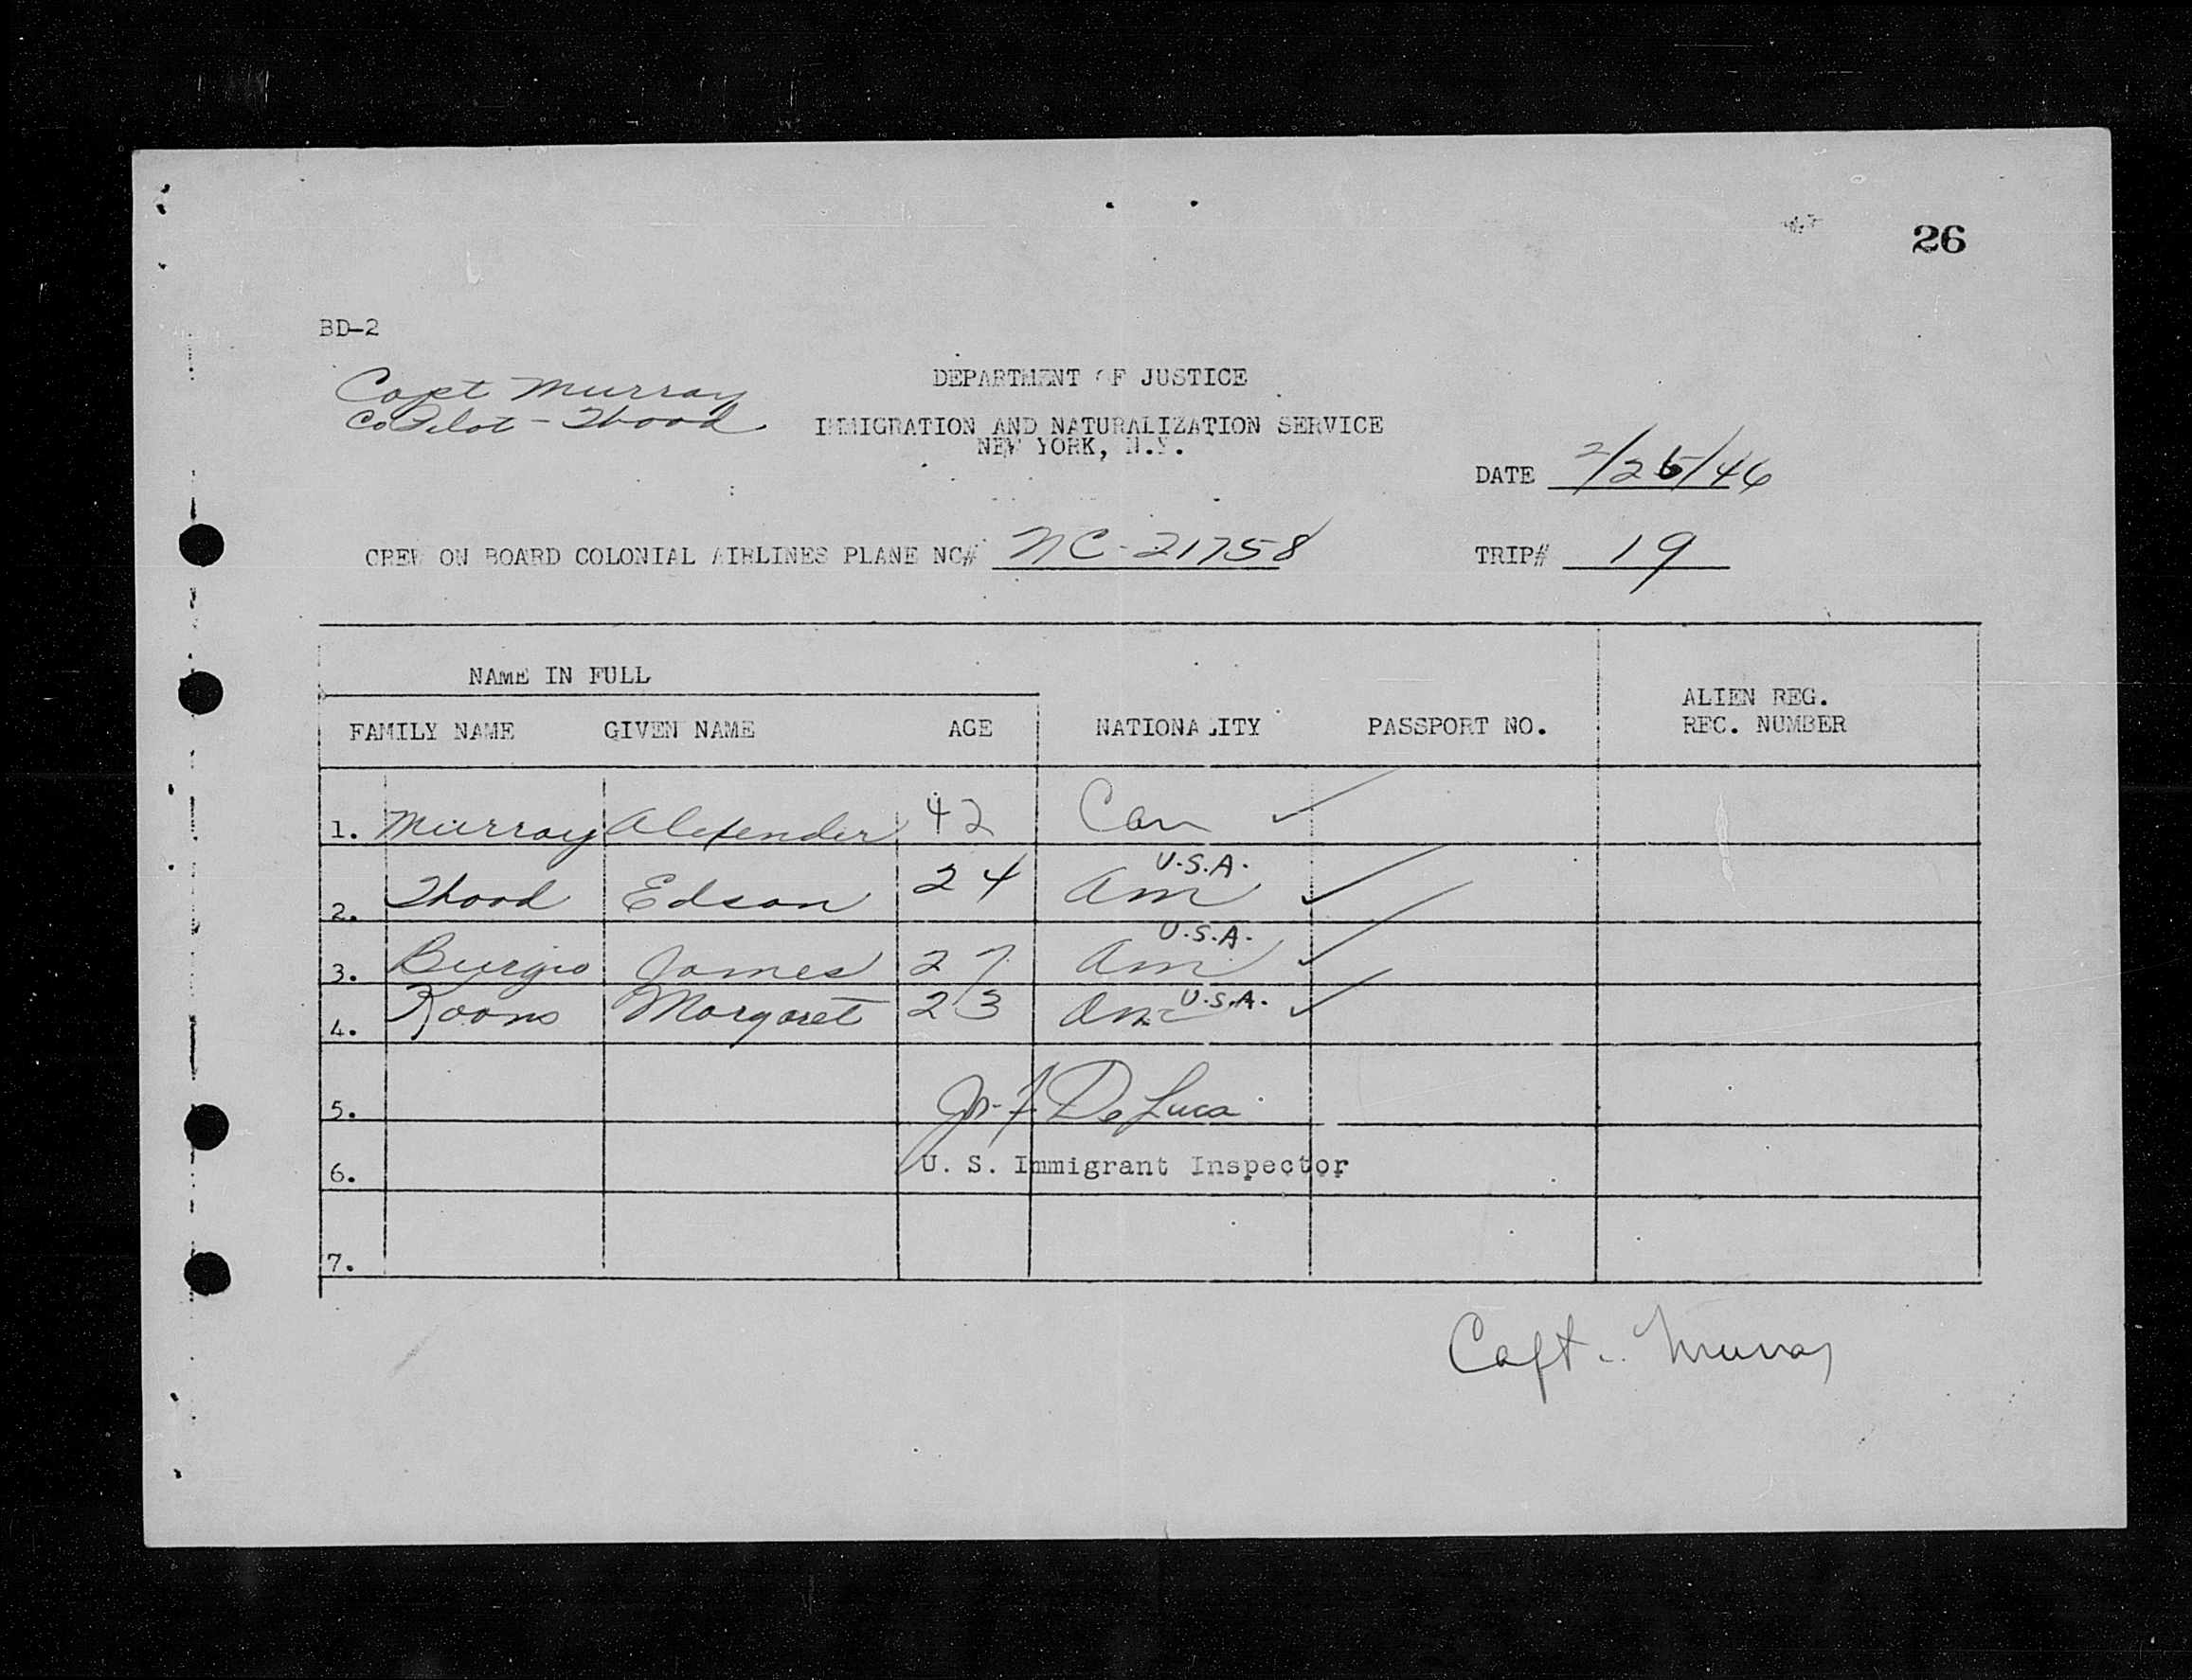 26
BD-2
Capt Murray
Co Pilot - Thood
DEPARTMENT OF JUSTICE
IMMIGRATION AND NATURALIZATION SERVICE
NEW YORK, N.Y.
DATE 2/25/46
CREW ON BOARD COLONIAL AIRLINES PLANE NC# NC-21758 TRIP# 19
NAME IN FULL
FAMILY NAME GIVEN NAME AGE NATIONALITY PASSPORT NO. ALIEN REG. REC. NUMBER
1. Murray Alexander 42 Can ✓
2. Thood Edson 24 Am U.S.A. ✓
3. Burgio James 27 Am U.S.A. ✓
4. Koons Margaret 23 Am U.S.A. ✓
5. De Luca
6. U. S. Immigrant Inspector
7.
Capt. Murray